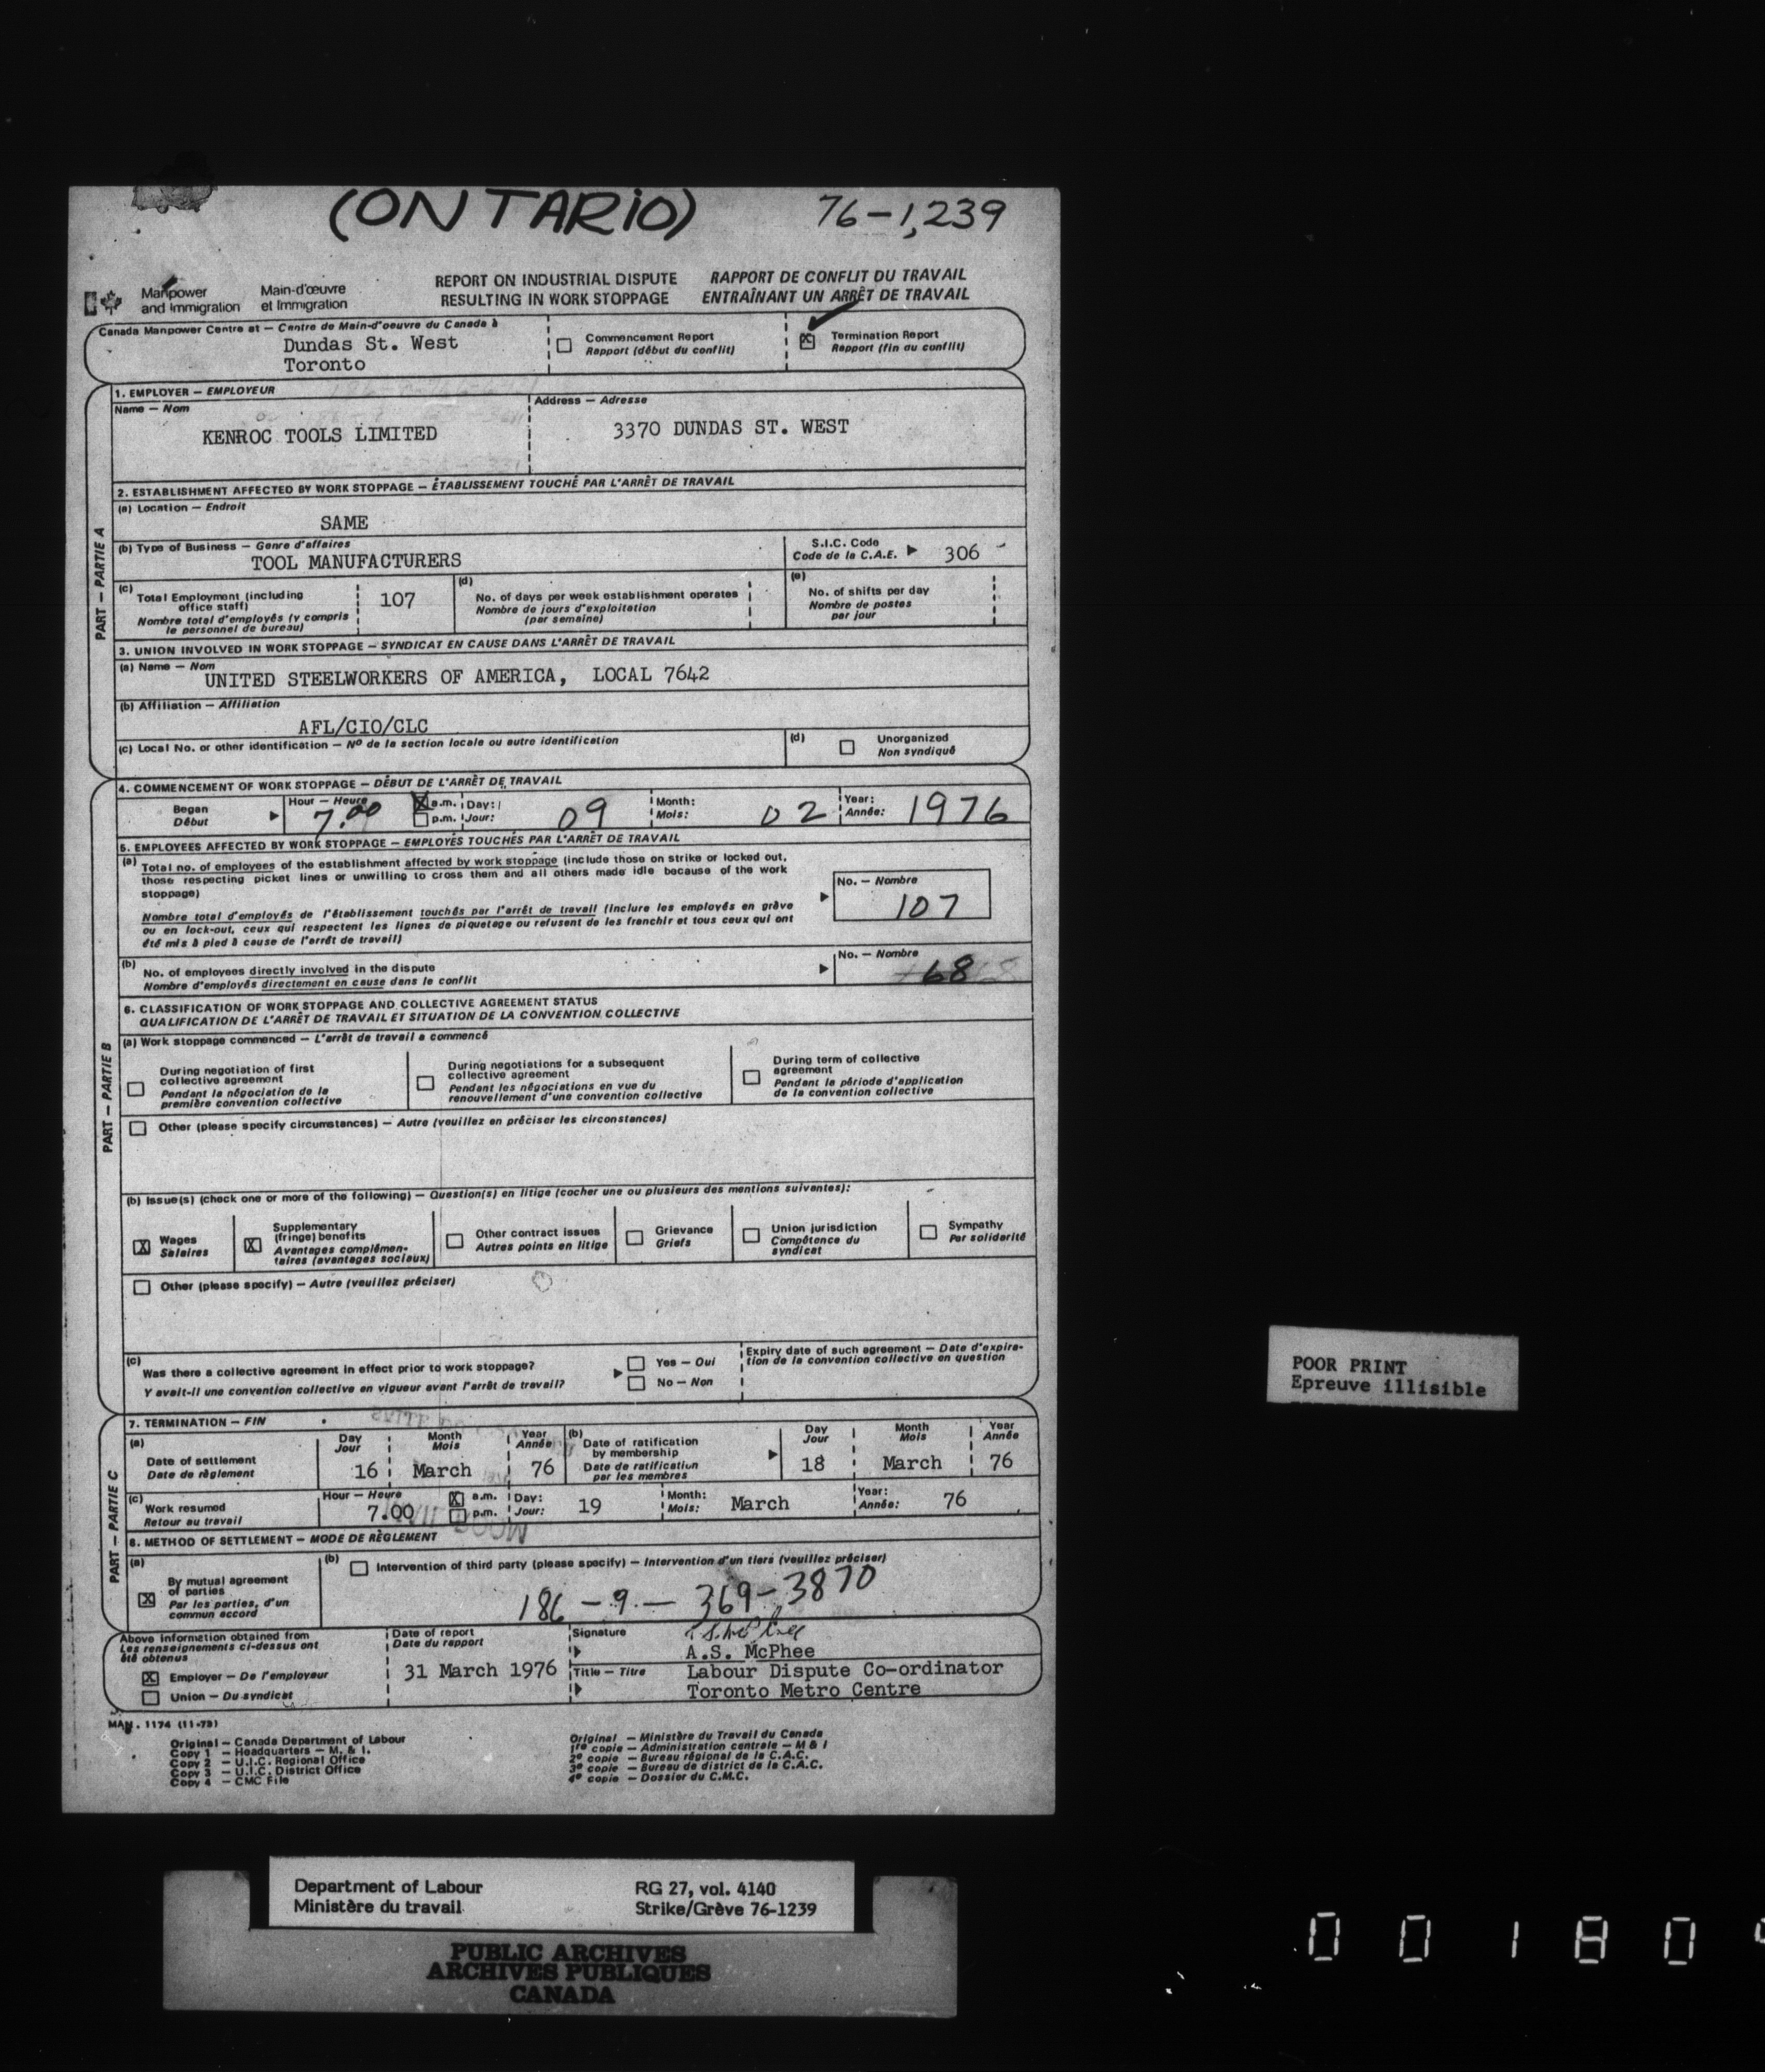 (ONTARIO) 76-1,239
Manpower and Immigration
Main-d'œuvre et Immigration
REPORT ON INDUSTRIAL DISPUTE RESULTING IN WORK STOPPAGE
RAPPORT DE CONFLIT DU TRAVAIL ENTRAÎNANT UN ARRÊT DE TRAVAIL
Canada Manpower Centre at — Centre de Main-d'oeuvre du Canada à
Dundas St. West
Toronto
Commencement Report
Rapport (début du conflit)
X Termination Report
Rapport (fin du conflit)
PART — PARTIE A
1. EMPLOYER — EMPLOYEUR
Name — Nom
KENROC TOOLS LIMITED
Address — Adresse
3370 DUNDAS ST. WEST
2. ESTABLISHMENT AFFECTED BY WORK STOPPAGE — ÉTABLISSEMENT TOUCHÉ PAR L'ARRÊT DE TRAVAIL
(a) Location — Endroit
SAME
(b) Type of Business — Genre d'affaires
TOOL MANUFACTURERS
S.I.C. Code
Code de la C.A.E. 306
(c) Total Employment (including
office staff)
Nombre total d'employés (y compris
le personnel de bureau)
107
(d) No. of days per week establishment operates
Nombre de jours d'exploitation
(par semaine)
(e) No. of shifts per day
Nombre de postes
par jour
3. UNION INVOLVED IN WORK STOPPAGE — SYNDICAT EN CAUSE DANS L'ARRÊT DE TRAVAIL
(a) Name — Nom
UNITED STEELWORKERS OF AMERICA, LOCAL 7642
(b) Affiliation — Affiliation
AFL/CIO/CLC
(c) Local No. or other identification — Nº de la section locale ou autre identification
(d) Unorganized
Non syndiqué
PART — PARTIE B
4. COMMENCEMENT OF WORK STOPPAGE — DÉBUT DE L'ARRÊT DE TRAVAIL
Began
Début
Hour — Heure
7.00
X a.m.
p.m.
Day:
Jour: 09
Month:
Mois: 02
Year:
Année: 1976
5. EMPLOYEES AFFECTED BY WORK STOPPAGE — EMPLOYÉS TOUCHÉS PAR L'ARRÊT DE TRAVAIL
(a) Total no. of employees of the establishment affected by work stoppage (include those on strike or locked out,
those respecting picket lines or unwilling to cross them and all others made idle because of the work
stoppage)
Nombre total d'employés de l'établissement touchés par l'arrêt de travail (inclure les employés en grève
ou en lock-out, ceux qui respectent les lignes de piquetage ou refusent de les franchir et tous ceux qui ont
été mis à pied à cause de l'arrêt de travail)
No. — Nombre
107
(b) No. of employees directly involved in the dispute
Nombre d'employés directement en cause dans le conflit
No. — Nombre
68
6. CLASSIFICATION OF WORK STOPPAGE AND COLLECTIVE AGREEMENT STATUS
QUALIFICATION DE L'ARRÊT DE TRAVAIL ET SITUATION DE LA CONVENTION COLLECTIVE
(a) Work stoppage commenced — L'arrêt de travail a commencé
During negotiation of first
collective agreement
Pendant la négociation de la
première convention collective
During negotiations for a subsequent
collective agreement
Pendant les négociations en vue du
renouvellement d'une convention collective
During term of collective
agreement
Pendant la période d'application
de la convention collective
Other (please specify circumstances) — Autre (veuillez en préciser les circonstances)
(b) Issue(s) (check one or more of the following) — Question(s) en litige (cocher une ou plusieurs des mentions suivantes):
X Wages
Salaires
X Supplementary
(fringe) benefits
Avantages complémen-
taires (avantages sociaux)
Other contract issues
Autres points en litige
Grievance
Griefs
Union jurisdiction
Compétence du
syndicat
Sympathy
Par solidarité
Other (please specify) — Autre (veuillez préciser)
(c) Was there a collective agreement in effect prior to work stoppage?
Y avait-il une convention collective en vigueur avant l'arrêt de travail?
Yes — Oui
No — Non
Expiry date of such agreement — Date d'expira-
tion de la convention collective en question
PART — PARTIE C
7. TERMINATION — FIN
(a) Date of settlement
Date de règlement
Day
Jour
16
Month
Mois
March
Year
Année
76
(b) Date of ratification
by membership
Date de ratification
par les membres
Day
Jour
18
Month
Mois
March
Year
Année
76
(c) Work resumed
Retour au travail
Hour — Heure
7.00
X a.m.
p.m.
Day:
Jour: 19
Month:
Mois: March
Year:
Année: 76
8. METHOD OF SETTLEMENT — MODE DE RÈGLEMENT
(a) X By mutual agreement
of parties
Par les parties, d'un
commun accord
(b) Intervention of third party (please specify) — Intervention d'un tiers (veuillez préciser)
186 - 9 - 369-3870
Above information obtained from
Les renseignements ci-dessus ont
été obtenus
X Employer — De l'employeur
Union — Du syndicat
Date of report
Date du rapport
31 March 1976
Signature
A.S. McPhee
Title — Titre
Labour Dispute Co-ordinator
Toronto Metro Centre
MAN. 1174 (11-73)
Original — Canada Department of Labour
Copy 1 — Headquarters — M. & I.
Copy 2 — U.I.C. Regional Office
Copy 3 — U.I.C. District Office
Copy 4 — CMC File
Original — Ministère du Travail du Canada
1re copie — Administration centrale — M & I
2e copie — Bureau régional de la C.A.C.
3e copie — Bureau de district de la C.A.C.
4e copie — Dossier du C.M.C.
POOR PRINT
Epreuve illisible
Department of Labour
Ministère du travail
RG 27, vol. 4140
Strike/Grève 76-1239
PUBLIC ARCHIVES
ARCHIVES PUBLIQUES
CANADA
00180